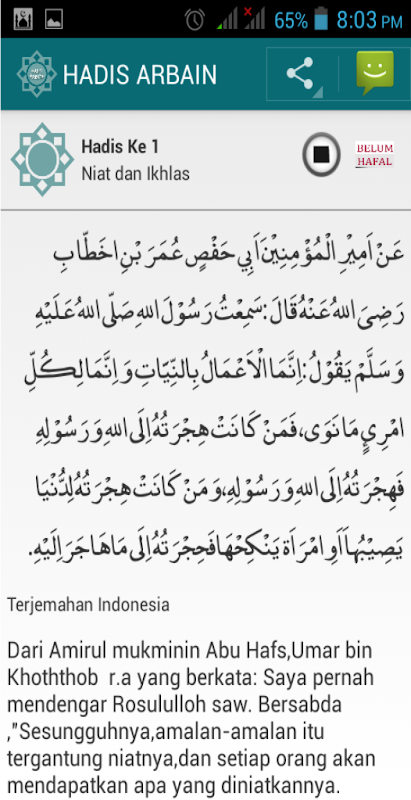 65% 8:03 PM
HADIS ARBAIN
Hadis Ke 1
Niat dan Ikhlas
BELUM
HAFAL
عَنْ اَمِيْرِ الْمُؤْمِنِيْنَ اَبِي حَفْصٍ عُمَرَ بْنِ اخَطَّابِ
رَضِيَ اللهُ عَنْهُ قَالَ: سَمِعْتُ رَسُوْلَ اللهِ صَلَّى اللهُ عَلَيْهِ
وَسَلَّمْ يَقُوْلُ: اِنَّمَا الْاَعْمَالُ بِالنِّيَّاتِ وَاِنَّمَا لِكُلِّ
امْرِىءٍ مَا نَوَى، فَمَنْ كَانَتْ هِجْرَتُهُ اِلَى اللهِ وَرَسُوْلِهِ
فَهِجْرَتُهُ اِلَى اللهِ وَرَسُوْلِهِ، وَمَنْ كَانَتْ هِجْرَتُهُ لِدُنْيَا
يَصِيْبُهَا اَوِ امْرَاَة يَنْكِحُهَا فَحِجْرَتُهُ اِلَى مَا هَاجَرَ اِلَيْهِ.
Terjemahan Indonesia
Dari Amirul mukminin Abu Hafs,Umar bin
Khoththob r.a yang berkata: Saya pernah
mendengar Rosululloh saw. Bersabda
,"Sesungguhnya,amalan-amalan itu
tergantung niatnya,dan setiap orang akan
mendapatkan apa yang diniatkannya.